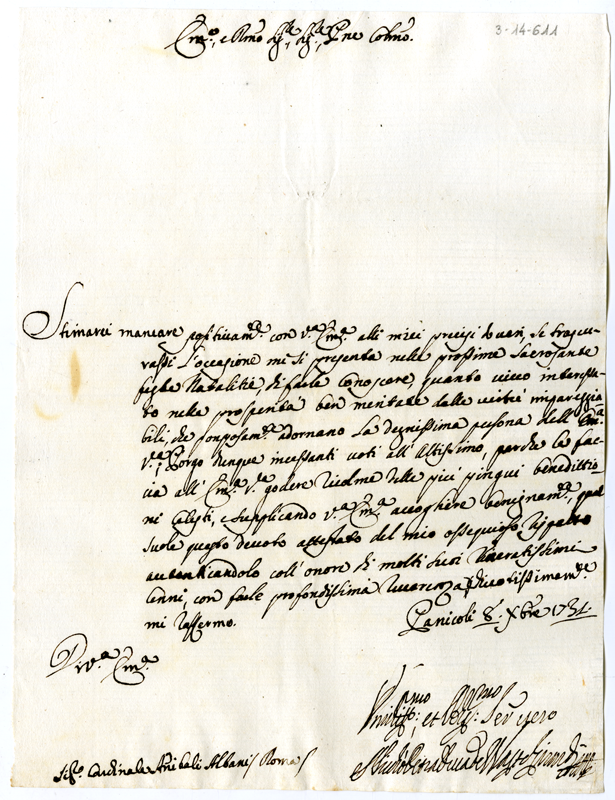 3-14-611
Em.o, e Rmo Sig.r, Sig.r Pne Colmo.
Stimarei mancare positivam.te con V.a Em.a alli miei precisi doveri, se trascu-
rassi l'occasione mi si presenta nelle prossime Sacrosante
feste Natalitie, di farle conoscere, quanto vivo interessa-
to nelle prosperità ben meritate dalle virtù impareggia-
bili, che pomposam.te adornano la degnissima persona dell' Em.a
V.a; Porgo dunque incessanti voti all' Altissimo, perche la fac-
cia all' Em.a V.a godere ricolme delle più pingui benedittio-
ni Celesti, e supplicando V.a Em.a accogliere benignam.te, qual
suole questo devoto attestato del mio ossequioso rispetto
autenticandolo coll' onore di molti suoi Veneratissimi
cenni, con farle profondissima riverenza divotissimam.te
mi rassermo. Panicoli 8. Xbre 1731.
Di V.a Em.a
Umiliss.mo, et Obl.mo Ser.re vero
Sig.r Cardinale Anibali Albani / Roma /